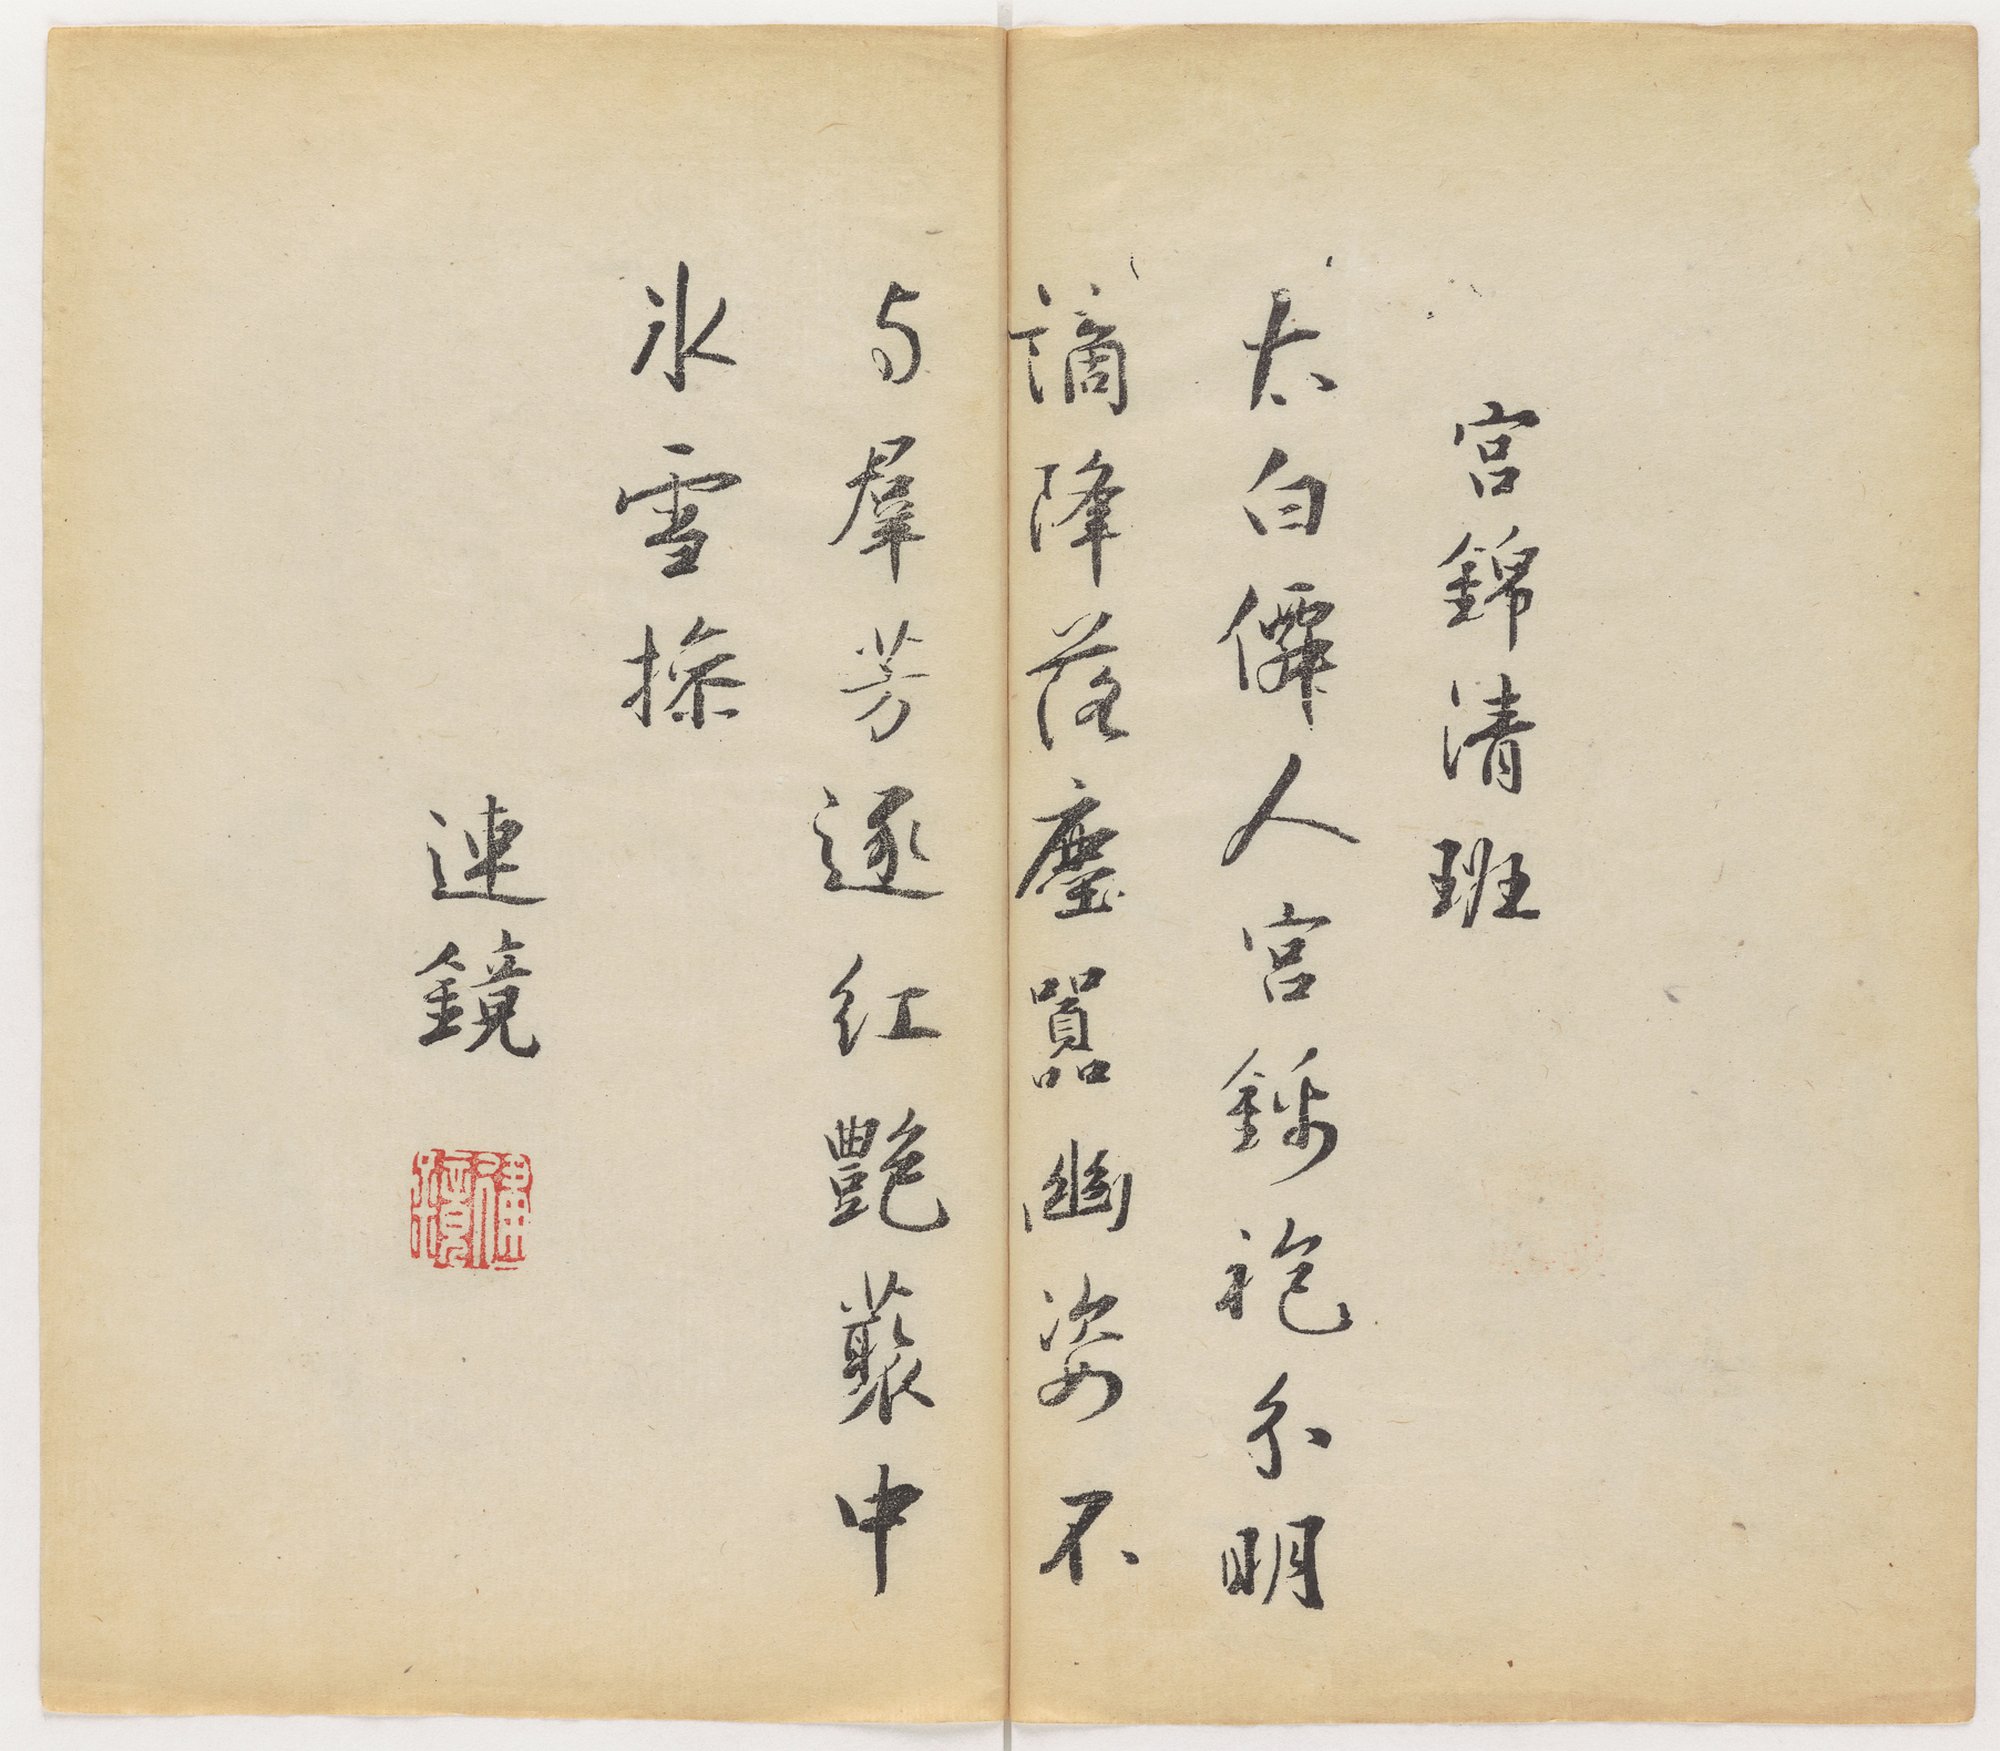 宮錦清班
太白僊人宮錦袍分明
謫降落塵囂幽姿不
与羣芳逐紅艷藂中
氷雪操
連鏡